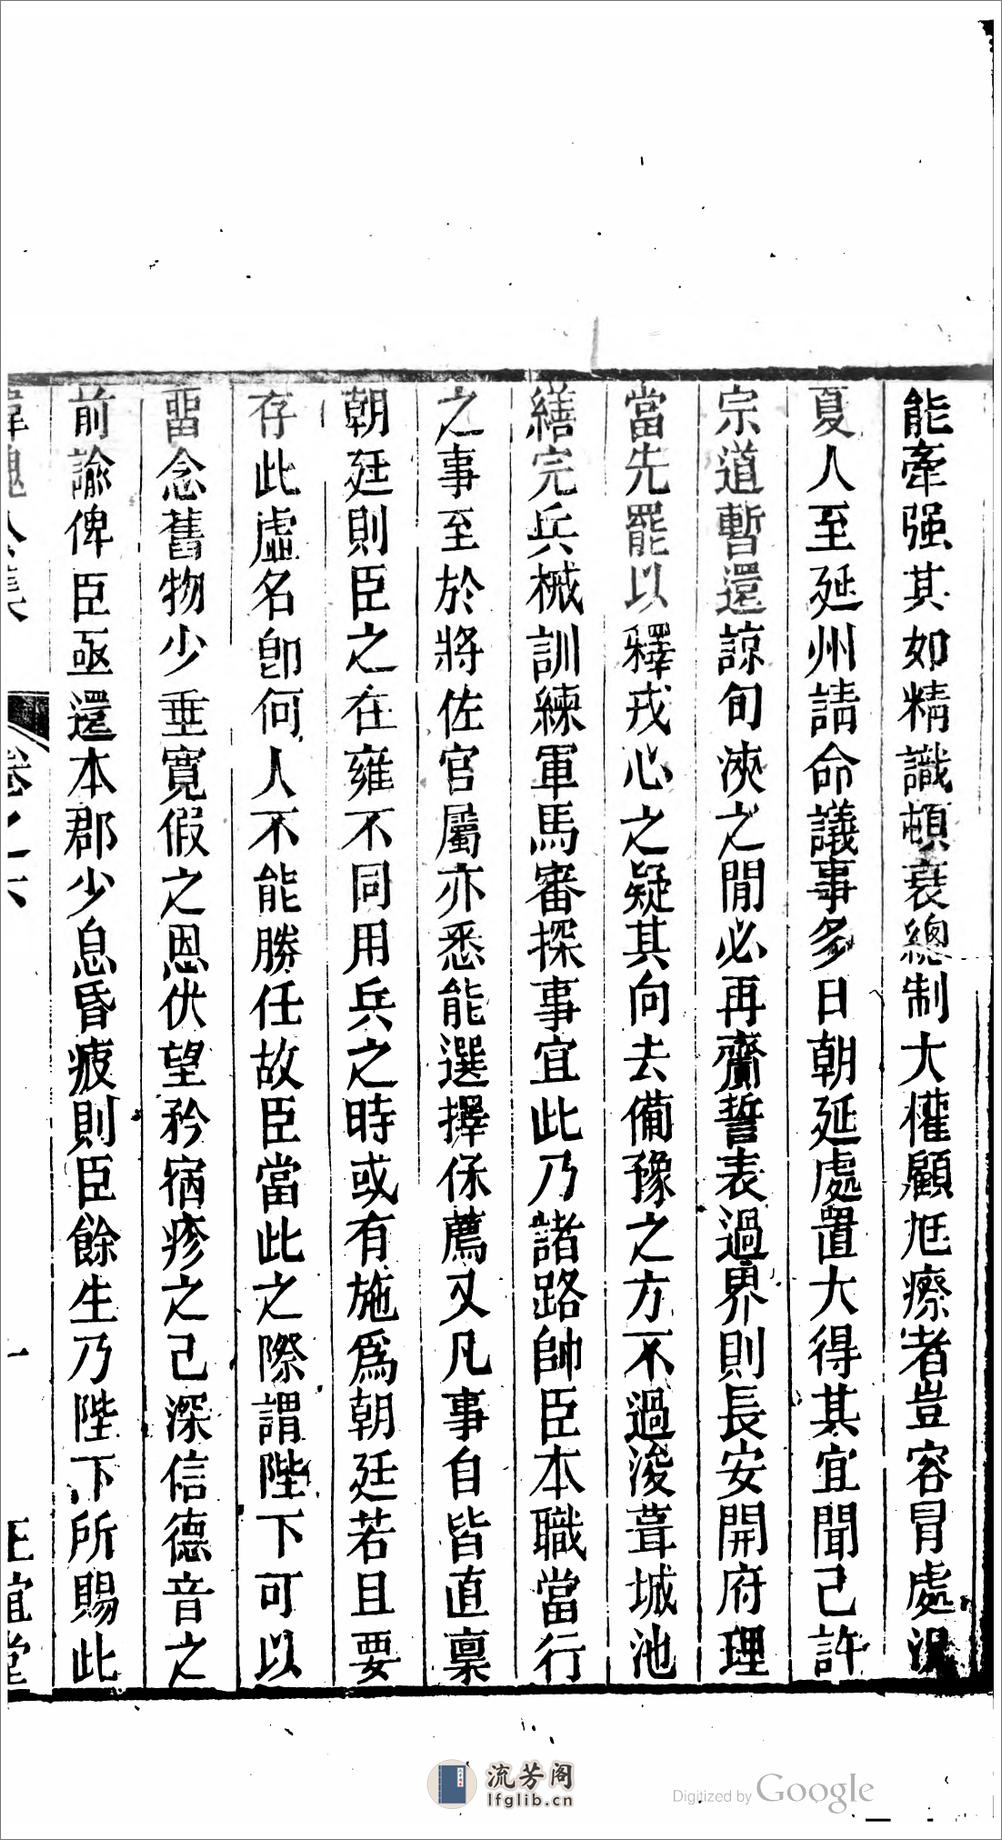 能牽强其如精識頓衰總制大權顧尫瘵者豈容冒處況
夏人至延州請命議事多日朝延處置大得其宜聞己許
宗道暫還諒旬浹之閒必再齎誓表過界則長安開府理
當先罷以釋戎心之疑其向去備豫之方不過浚葺城池
繕完兵械訓練軍馬審探事宜此乃諸路帥臣本職當行
之事至於將佐官屬亦悉能選擇保薦又凡事自皆直稟
朝廷則臣之在雍不同用兵之時或有施爲朝廷若且要
存此虛名卽何人不能勝任故臣當此之際謂陛下可以
畱念舊物少垂寬假之恩伏望矜病疹之己深信德音之
前諭俾臣亟還本郡少息昏疲則臣餘生乃陛下所賜此
韓魏公集 卷之六 一 正誼堂
流芳阁
lfglib.cn
Digitized by Google